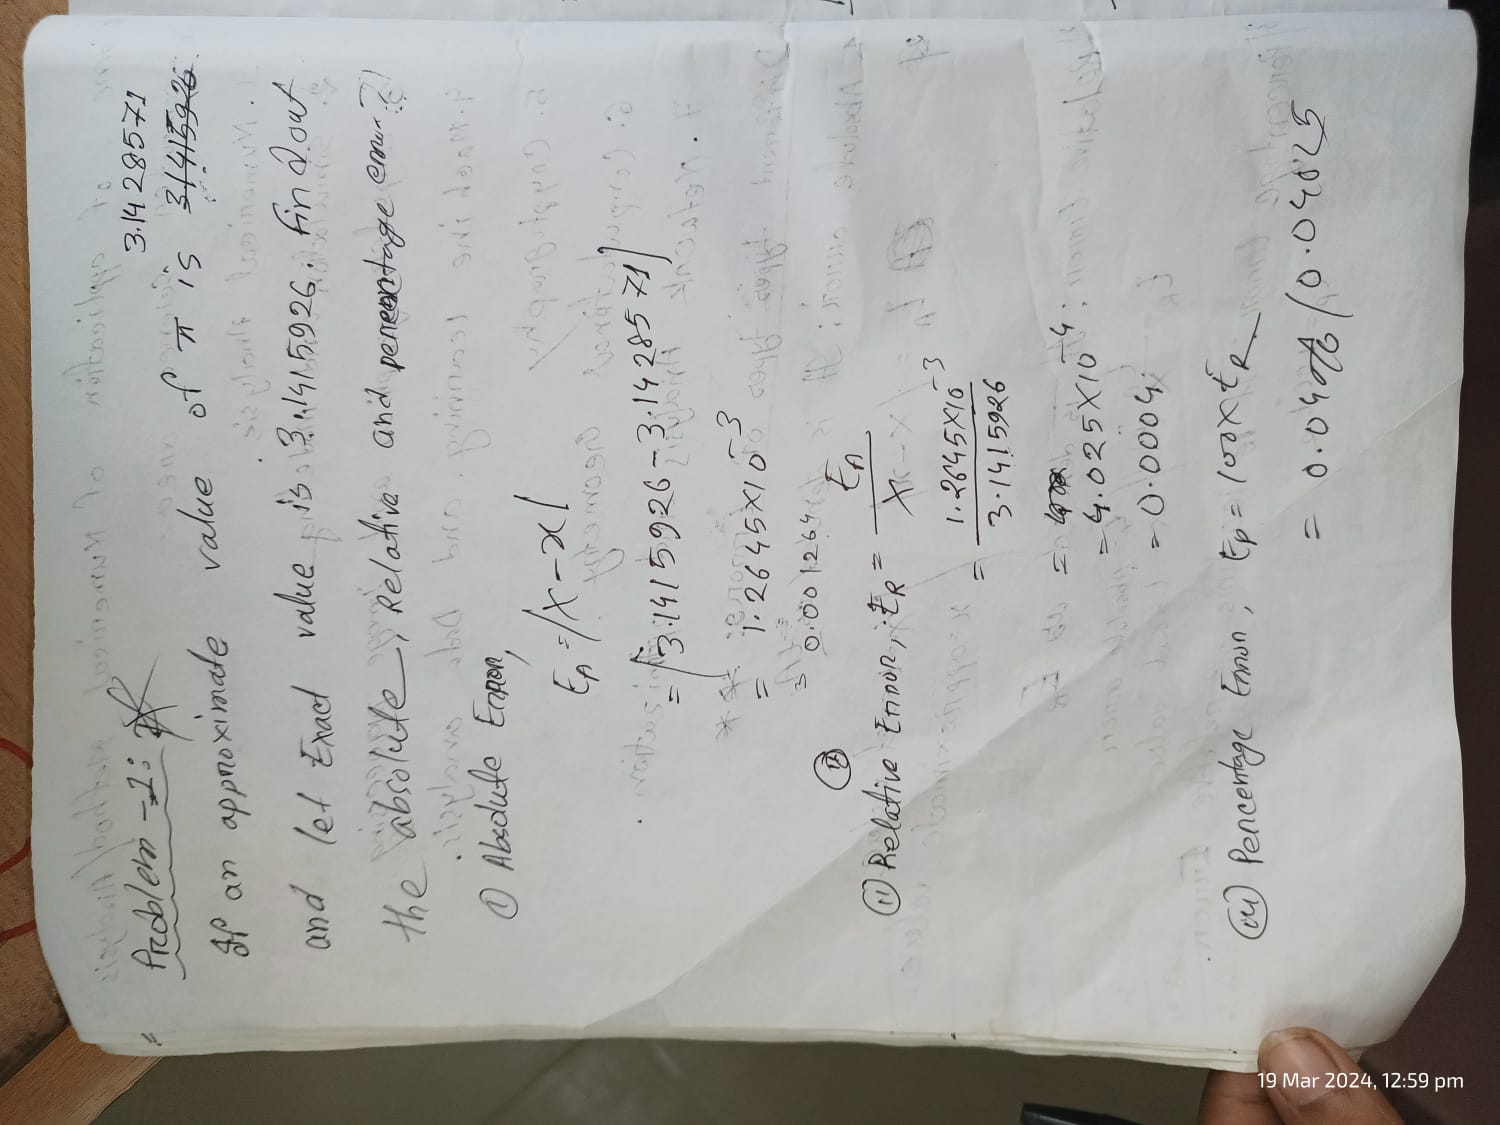 Problem -1:
3.1428571
If an approximate value of π is 31415926
and let Exact value is 3.1415926. Find out
the absolute, Relative and percentage error?
① Absolute Error,
E_A = |X-x|
= |3.1415926-3.1428571|
= 1.2645×10^-3
= 0.001264
⑪ Relative Error, E_R = E_A / X
= 1.2645×10^-3 / 3.1415926
=
= 4.025×10^-4
= 0.0004
(iii) Percentage Error, E_P = 100×E_R
= 0.04% / 0.04025
19 Mar 2024, 12:59 pm